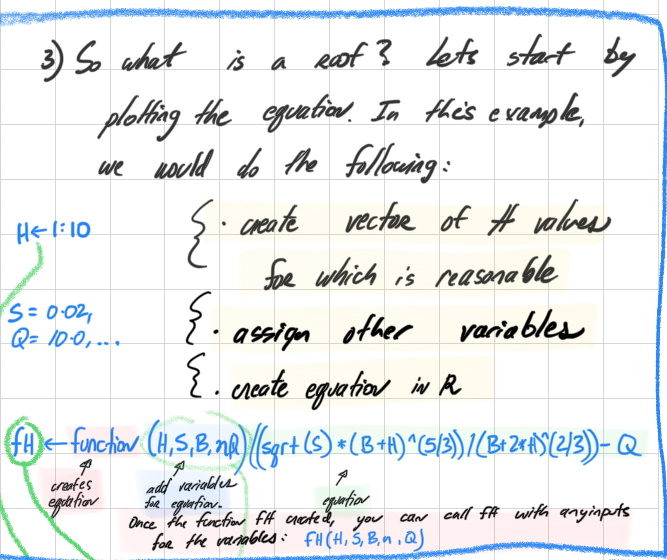 3) So what is a root? Lets start by
plotting the equation. In this example,
we would do the following:
H←1:10
· create vector of H values
for which is reasonable
S = 0.02,
Q= 10.0,...
· assign other variables
· create equation in R
fH ← function (H,S,B,nQ) ((sqrt(S) *(B+H)^(5/3))/(B+2*H)^(2/3))-Q
creates
equation
add variables
for equation.
equation
Once the function fH created, you can call fH with any inputs
for the variables: fH(H,S,B,n,Q)